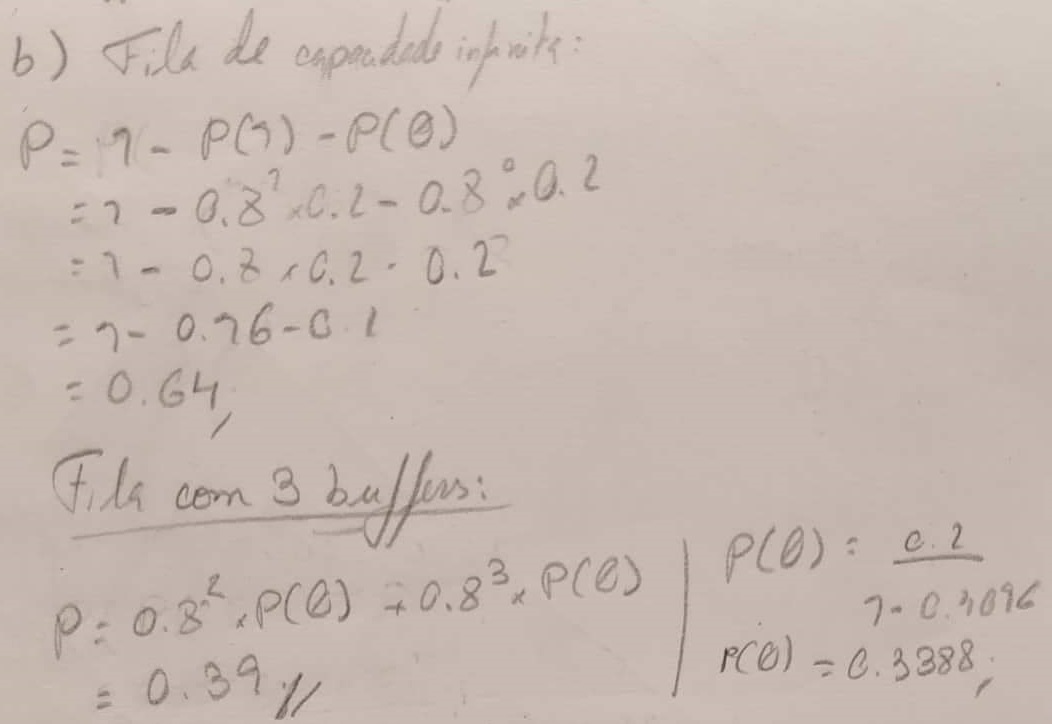 b) Fila de capacidade infinita:
P = 1 - P(1) - P(0)
= 1 - 0.8¹ × 0.2 - 0.8⁰ × 0.2
= 1 - 0.8 × 0.2 - 0.2
= 1 - 0.16 - 0.2
= 0.64,
Fila com 3 buffers:
P = 0.8² × P(0) + 0.8³ × P(0)
= 0.39 //
P(0) = 0.2 / 1 - 0.4096
P(0) = 0.3388,